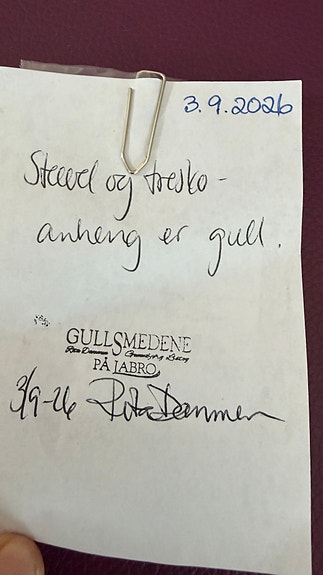 3.9.2026
Støvel og tresko-
anheng er gull.
GULLSMEDENE
PÅ JABRO
3/9-26 Rita Dammen